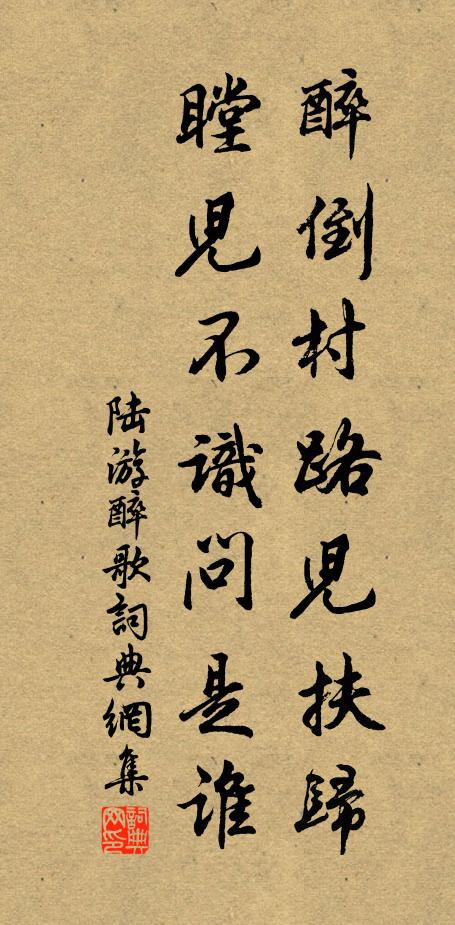 醉倒村路兒扶歸
瞠兒不識問是誰
陆游醉歌詞典網集
詞典网印